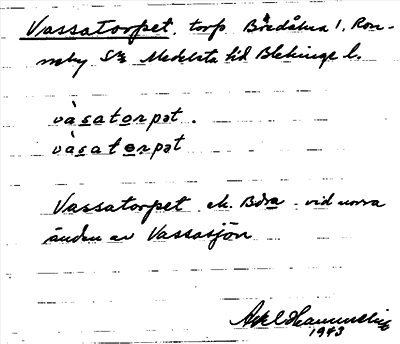 Vassatorpet, torp Bredåkra 1, Ron-
neby Sn Medelsta hd Blekinge l.
vàsatorpət.
vàsatorpət
Vassatorpet ek. Böra vid norra
änden av Vassasjön
Axel
1943